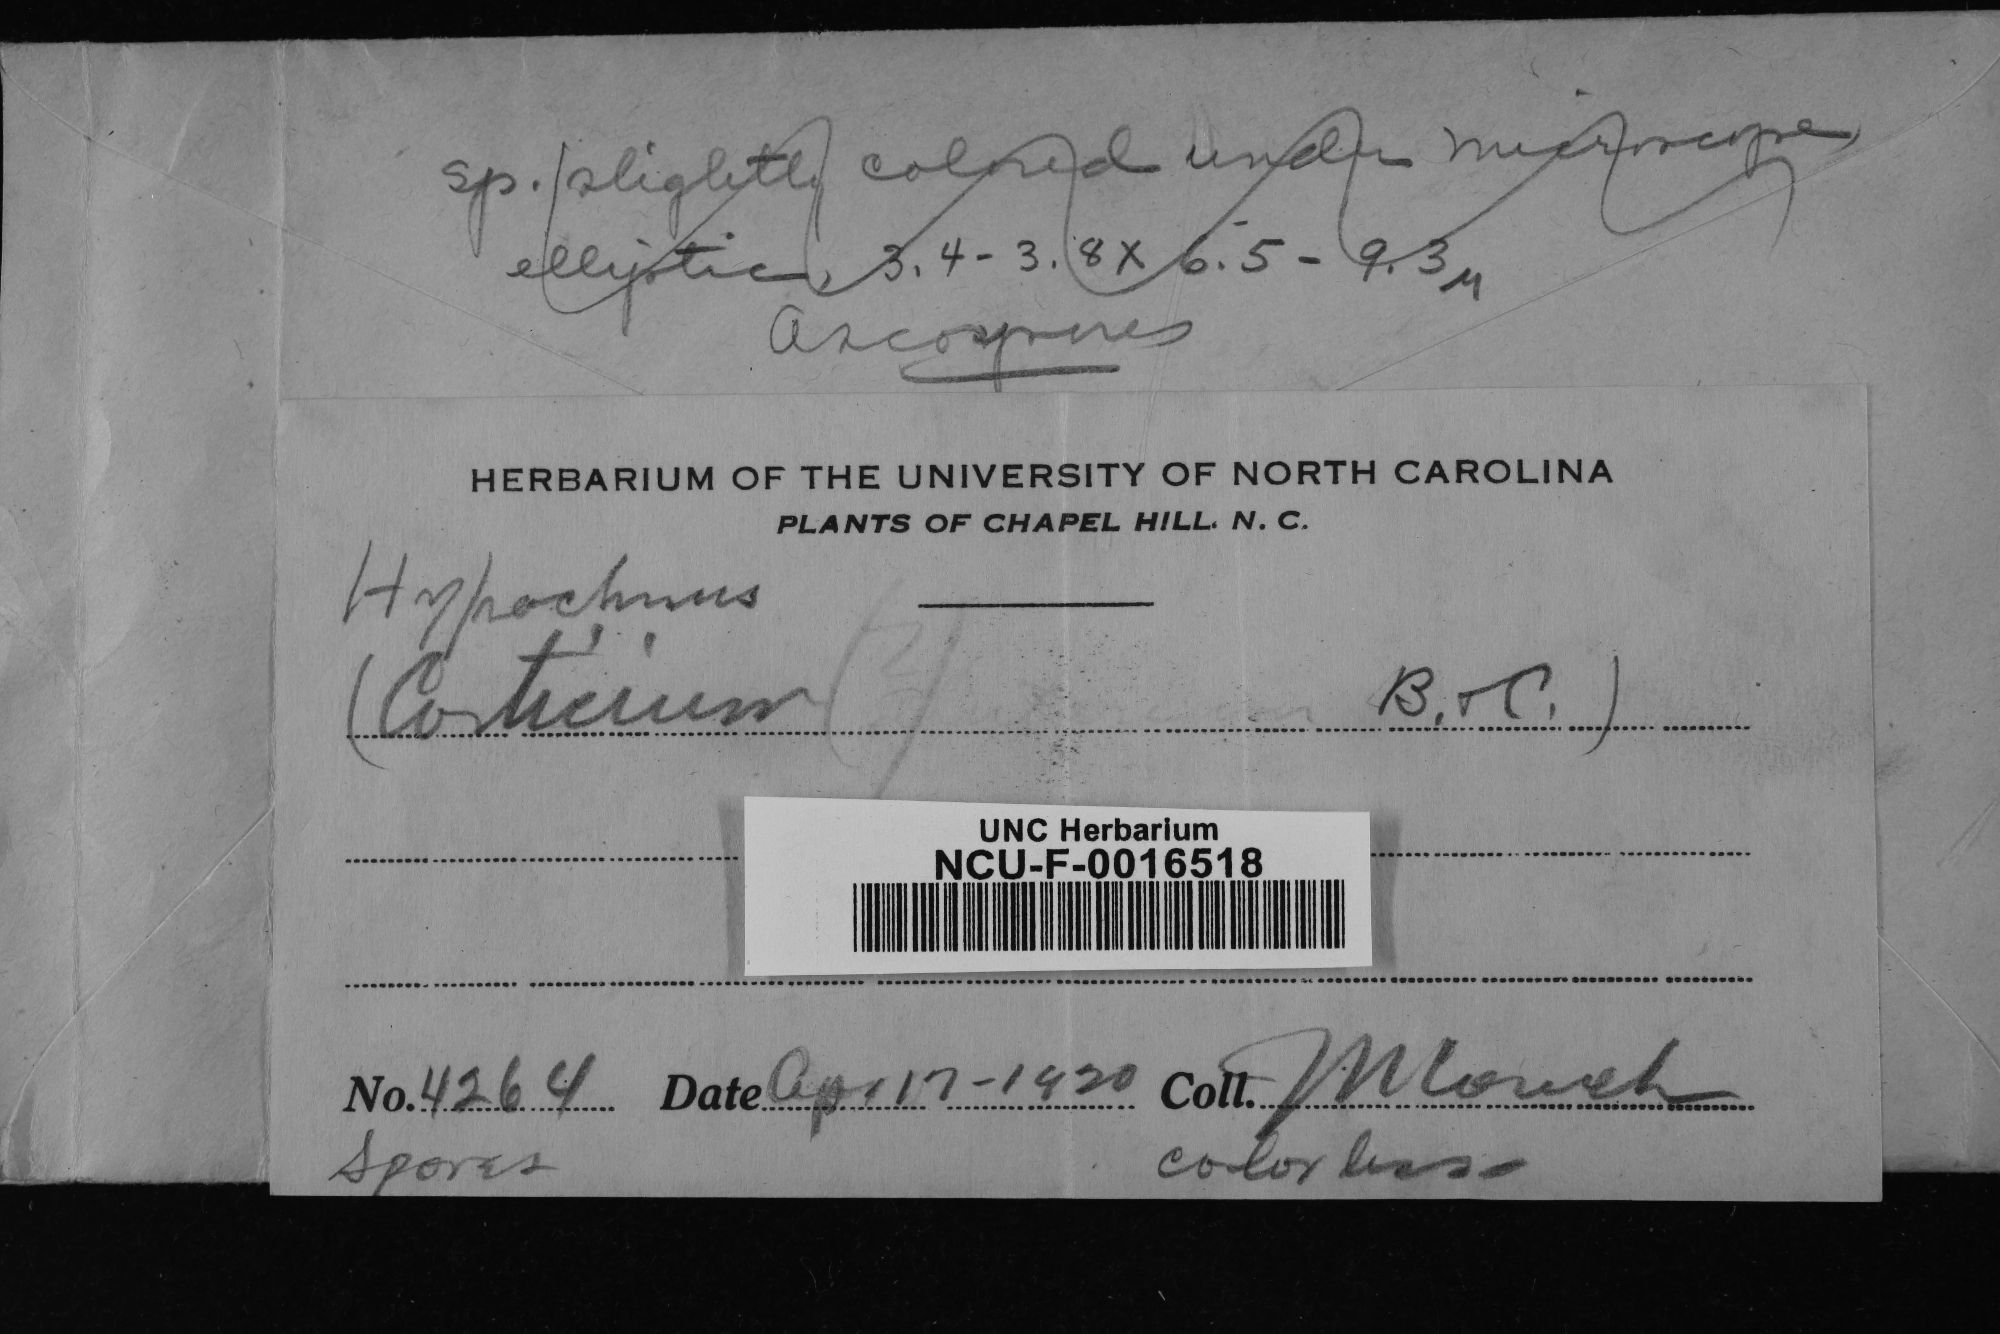 sp. slightly colored under microscope
elliptic, 3.4 - 3.8 X 6.5 - 9.3 µ
Ascospores
HERBARIUM OF THE UNIVERSITY OF NORTH CAROLINA
PLANTS OF CHAPEL HILL, N. C.
Hypochnus
(Corticium B. + C.)
UNC Herbarium
NCU-F-0016518
No. 4264 Date Apr 17-1920 Coll. JN Couch
Spores colorless